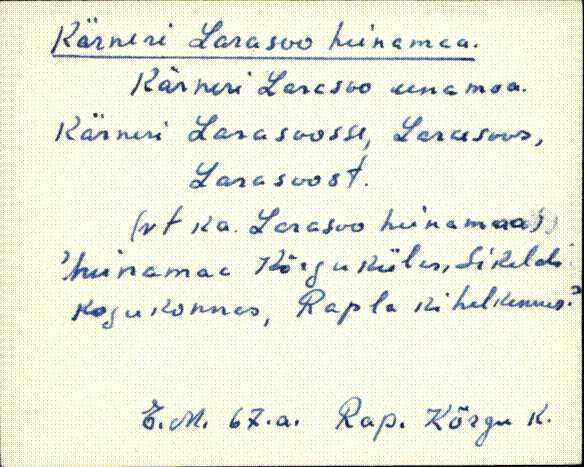 Kärneri Larasoo heinamaa.
Kärneri Larasoo einamaa.
Kärneri Larasoosse, Larasoos,
Larasoost.
(vt ka. Larasoo heinamaa)
'heinamaa Kõrgu külas, Sikeldi
kogukonnas, Rapla kihelkonnas.'
E.M. 67.a. Rap. Kõrgu k.